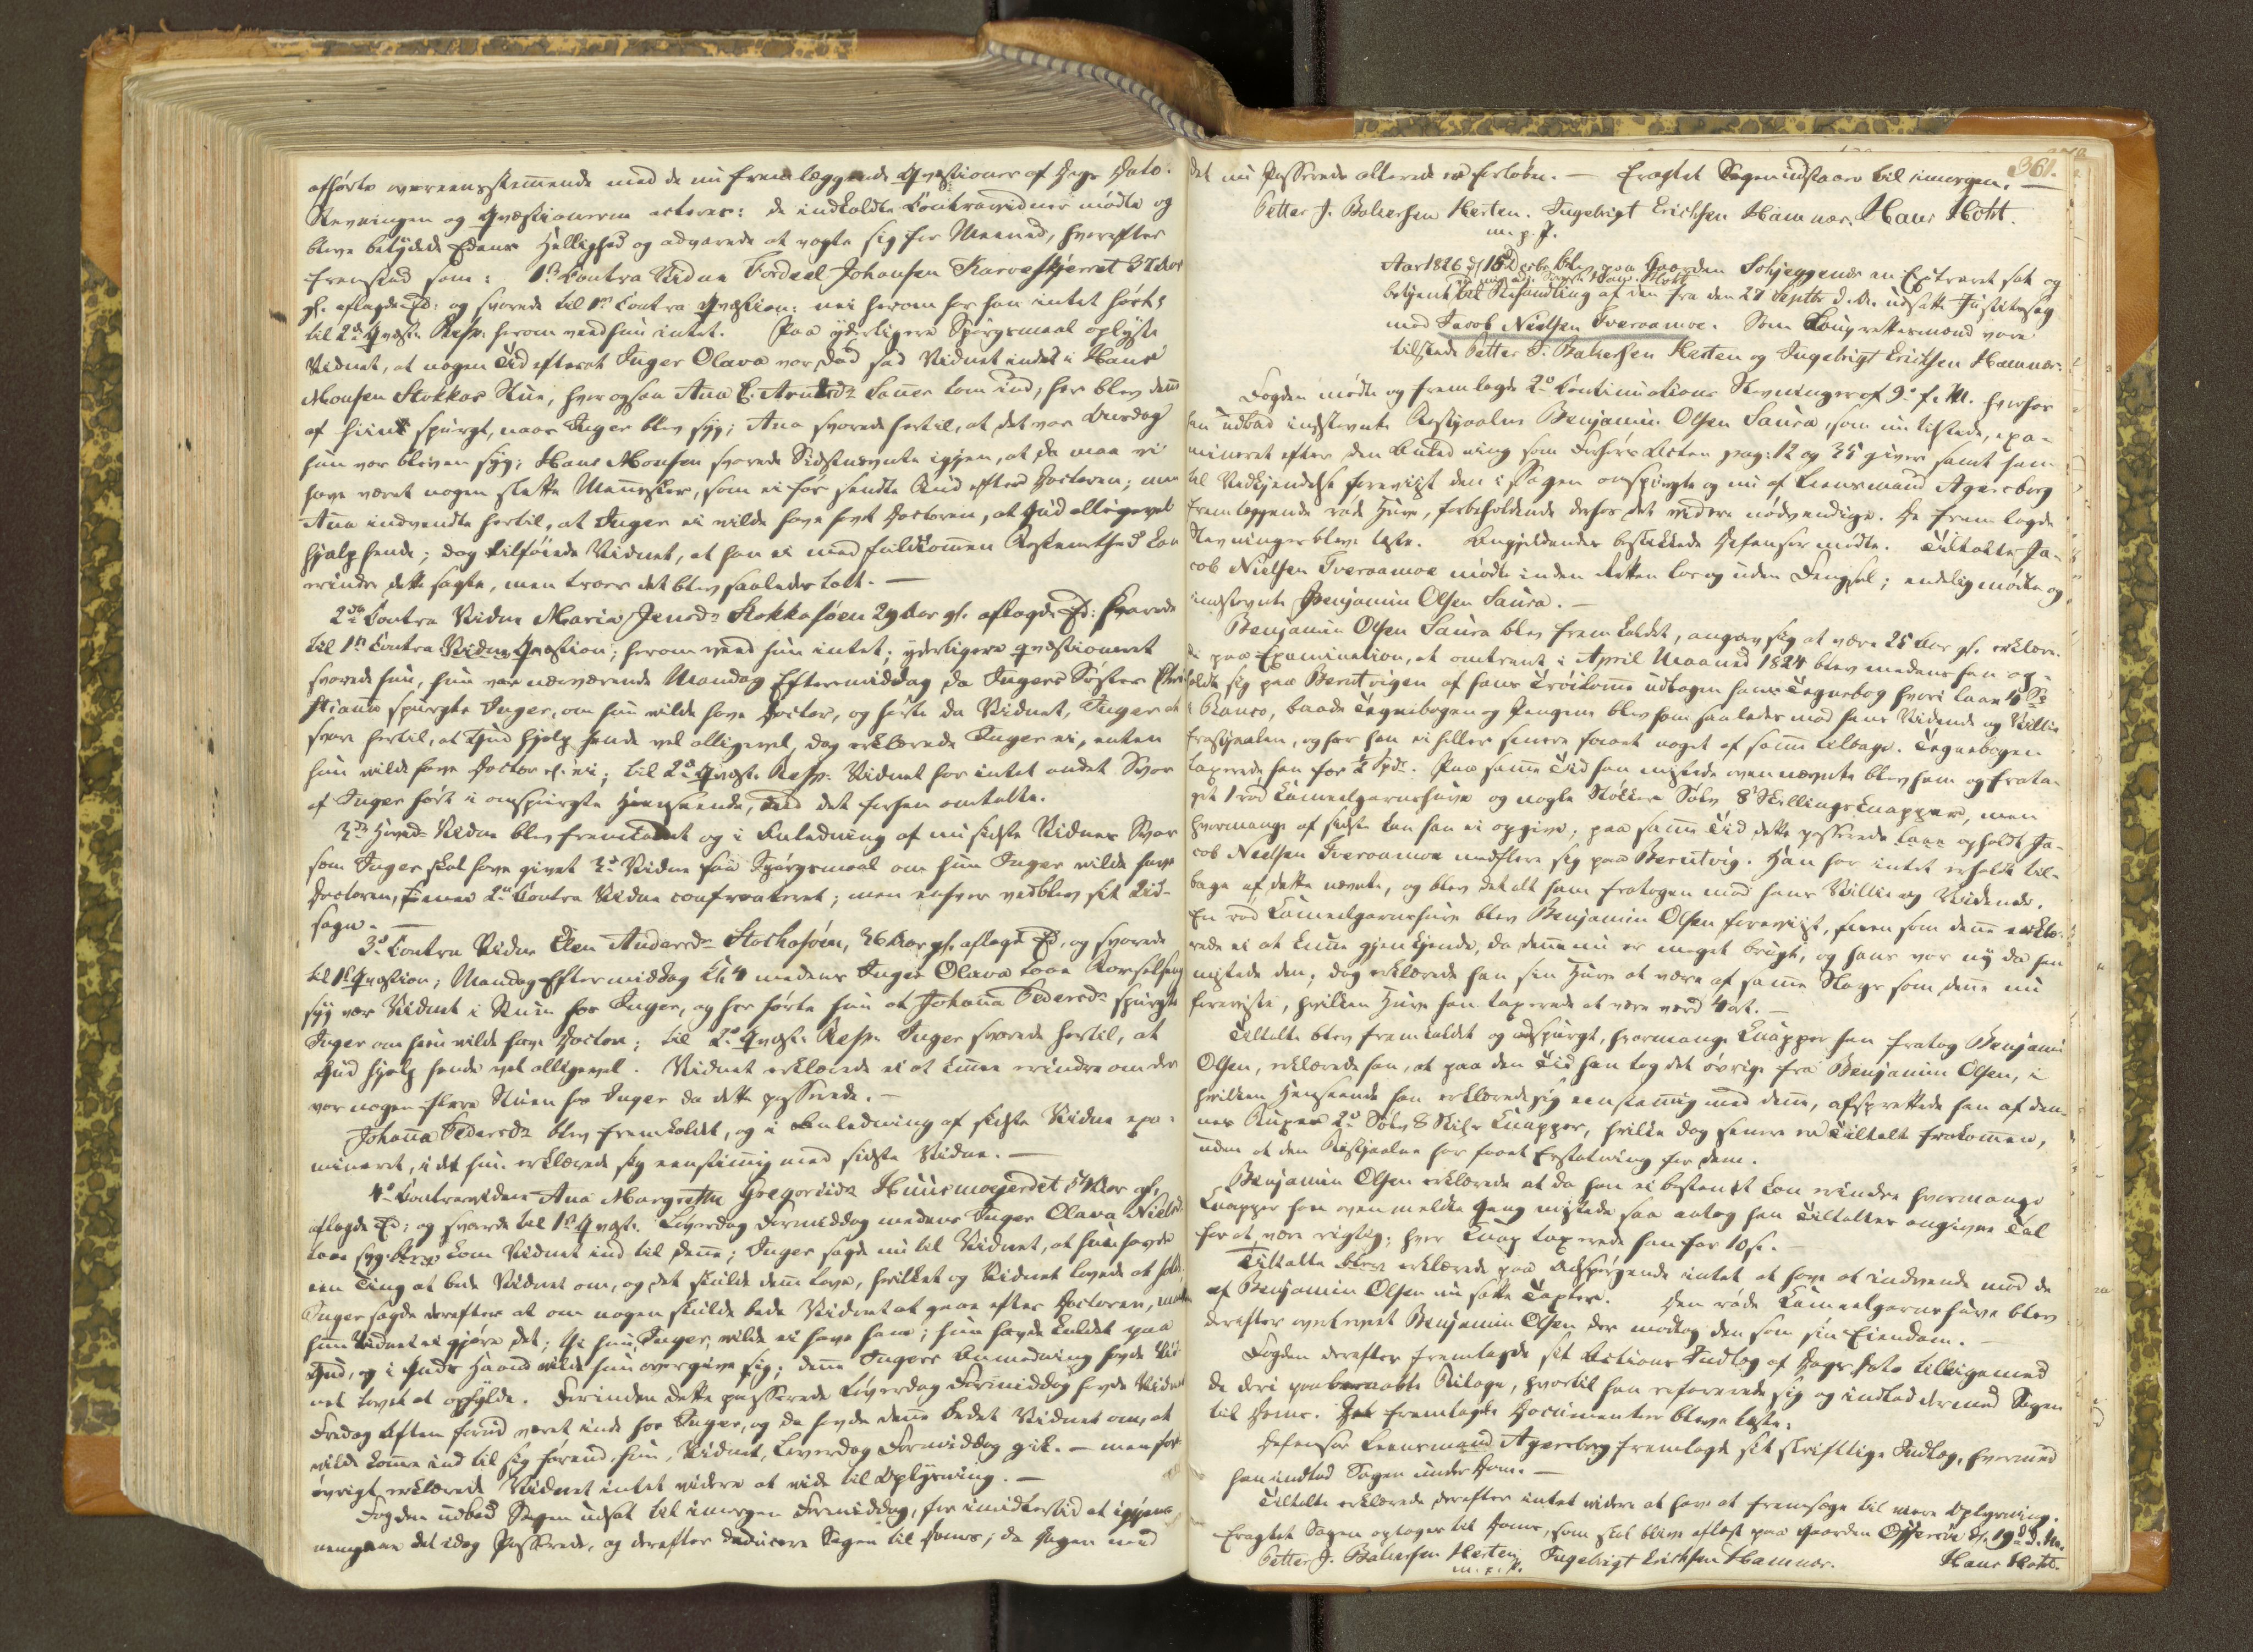 afhørte overeensstemmende med de nu fremlæggende Qvæstioner af Dags Dato.
Stevningen og Qvæstionerne acteres: de indkaldte Contravidner mødte og
bleve betydede Edens Hellighed og advarede at vogte sig for Meened, hvorefter
fremstod som: 1ste Contra Vidne Fordeel Johansen Karveskjerret 37 Aar
gl. aflagde Ed: og svarede til 1ste Contra Qvæstion: nei herom har han intet hørt;
til 2den Qvæst: Resp: herom veed hun intet. Paa yderligere Spørgsmaal oplyste
Vidnet, at nogen Tid efterat Inger Olava var død sad Vidnet inde i Hans
Monsen Stokkes Stue, hvor ogsaa Ana E. Arntsd: kom ind, her blev denne
af hiint spurgt, naar Inger blev syg; Ana svarede hertil, at det var Onsdag
hun var bleven syg; Hans Monsen svarede Sidstnævnte igjen, at da maa vi
have været nogen slette Mennesker, som ei før sendte Bud efter Doctoren; men
Ana indvendte hertil, at Inger ei vilde have havt Doctoren, at Gud alligevel
hjalp hende; dog tilføiede Vidnet, at han ei med fuldkommen Bestemthed kan
erindre dette sagte, men troer det blev saaledes talt. —
2det Contra Vidne Maria Jensd: Stokkasøen 29 Aar gl. aflagde Ed: svarede
til 1ste Contra Vidne Qvæstion; herom veed hun intet; yderligere qvæstioneret
svarede hun, hun var nærværende Mandag Eftermiddag da Ingers Søster Chri
stiana spurgte Inger, om hun vilde have Doctor, og hørte da Vidnet, Inger at
svare hertil, at Gud hjelp hende vel alligevel, dog erklærede Inger ei, enten
hun vilde have Doctor el: ei; til 2den Qvæst: Resp: Vidnet har intet andet Svar
af Inger hørt i omspurgte Henseende, end det forhen omtalte.
3de Hoved Vidne blev fremkaldet og i Anledning af nu sidste Vidnes Svar
som Inger skal have givet 3de Vidne paa Spørgsmaal om hun Inger vilde have
Doctoren, 2det Contra Vidne confronteret; men enhver vedblev sit Ud-
sagn. —
3de Contra Vidne Elen Andersd: Stokasøen, 36 Aar gl. aflagde Ed, og svarede
til 1ste Qvæstion; Mandag Eftermiddag Kl 4 medens Inger Olava laae Barselseng
syg var Vidnet i Stuen hos Inger, og her hørte hun at Johana Pedersd: spurgte
Inger om hun vilde have Doctor; til 2den Qvæst: Resp: Inger svarede hertil, at
Gud hjelp hende vel alligevel. Vidnet erklærede ei at kunne erindre om der
var nogen flere Stuen hos Inger da dette passerede. —
Johana Pedersd: blev fremkaldet, og i Anledning af sidste Vidne exa-
mineret, idet hun erklærede sig eenstemmig med sidste Vidne. —
4de Contravidne Ana Margrethe Gregoriisd: Huusmoegerdet 54 Aar gl,
aflagde Ed: og svarede til 1ste Qvæst: Løverdag Formiddag medens Inger Olava Nielsd:
laae syg kom Vidnet ind til denne; Inger sagde nu til Vidnet, at hun havde
een Ting at bede Vidnet om, og det skulde denne love, hvilket og Vidnet lovede at holde,
Inger sagde derefter at om nogen skulde bede Vidnet at gaae efter Doctoren, maatte
hun Vidnet ei gjøre det; thi hun, Inger, vilde ei have ham; hun havde kaldet paa
Gud, og i Guds Haand vilde hun overgive sig; denne Ingers Anmodning havde Vid-
net lovet at opfylde. Forinden dette passerede Løverdag Formiddag havde Vidnet
Fredag Aften forud været inde hos Inger, og da havde denne bedet Vidnet om, at
vilde komme ind til sig forend hun, Vidnet, Løverdag Formiddag gik. — men for
øvrigt erklærede Vidnet intet videre at vide til Oplysning. —
Fogden udbad Sagen udsat til imorgen Formiddag, for imidlertid at igjen-
nemgaae det idag Passerede, og derefter deducere Sagen til Doms; da Dagen med
361.
det nu Passerede allerede er forløben. — Eragtet Sagen udstaaer til imorgen. —
Petter J. Bahersen Hesten. Ingebrigt Erichsen Hamnær. Hans Holst.
m. p. P.
Aar 1826 d: 16 Decbr blev paa Gaarden Sohjeggende en Extraret sat og
betjent til Behandling af den fra den 27 Septbr d. A. udsatte Justitssag
mod Jacob Nielsen Tveraamoe. Som Laugrettesmænd vare
tilstede Petter J. Bahersen Hesten og Ingebrigt Erichsen Hamnær.
Fogden mødte og fremlagde 2den Continuations Stevninger af 9de f. M. hvorfor
han udbad indstevnte Bestjaalne Benjamin Olsen Saura, som nu tilstede, exa-
mineret efter den Anledning som Forhørs Acten pag: 12 og 35 giver samt ham
til Vedkjendelse foreviist den i Sagen omspurgte og nu af Leensmand Agersborg
fremlæggende røde Huve, forbeholdende derhos det videre nødvendige. De fremlagde
Stevninger bleve læste. Angjeldendes beskikkede Defensor mødte. Tiltalte Ja-
cob Nielsen Tveraamoe mødte inden Retten los og uden Fængsel; endelig mødte og
indstevnte Benjamin Olsen Saura. —
Benjamin Olsen Saura blev fremkaldet, angav sig at være 25 Aar gl. erklære-
de paa Examination, at omtrent i April Maaned 1824 blev medens han op-
holdt sig paa Berutvigen af hans Trøilomme udtagen hans Tegnebog hvori laae 4 Sp
i Banco, baade Tegnebogen og Pengene blev ham saaledes mod hans Vidende og Villie
frastjaalen, og har han ei heller senere faaet noget af samme tilbage. Tegnebogen
taxerede han for ½ Spd:. Paa samme Tid han mistede ovennævnte blev ham og frata-
get 1 rød Kameelgarnshuve og nogle Stökker Sølv 8 Skillings Knapper, men
hvormange af sidste kan han ei opgive; paa samme Tid dette passerede laae opholdt Ja-
cob Nielsen Tveraamoe medflere sig paa Berutvig. Han har intet erholdt til-
bage af dette nævnte, og blev det alt ham fratagen mod hans Villie og Vidende.
En rød Kameelgarnshuve blev Benjamin Olsen foreviist, hven som denne erklæ-
rede ei at kunne gjenkjende, da denne nu er meget brugt, og hans var ny da han
mistede den; dog erklærede han sin Huve at være af samme Slags som denne nu
foreviste, hvilken Huve han taxerede at være værd 4 ort. —
Tiltalte blev fremkaldet og adspurgt, hvormange Knapper han fratog Benjamin
Olsen, erklærede han, at paa den Tid han tog det øvrige fra Benjamin Olsen, i
hvilken Henseende han erklærede sig eenstemmig med denne, afsprettede han af den-
nes Buxer 2de Sølv 8 Skills Knapper, hvilke dog senere er Tiltalt frakommen,
uden at den Bestjaalne har faaet Erstatning for dem.
Benjamin Olsen erklærede at da han ei bestemt kan erindre hvormange
Knapper han ovenmeldte Gang mistede saa antog han Tiltaltes angivne Tal
for at være rigtig; hver Knap taxerede han for 10 s. —
Tiltalte erklærede paa Adspørgende intet at have at indvende mod de
af Benjamin Olsen nu satte Taxter. Den røde Kameelgarnshuve blev
derefter overleveret Benjamin Olsen der modtog den som sin Eiendom. —
Fogden derefter fremlagde sit Actions Indlæg af Dags Dato tilligemed
de deri paaberaabte Bilage, hvortil han refererede sig og indlod dermed Sagen
til Doms. De fremlagte Documenter bleve læste.
Defensor Leensmand Agersborg fremlagde sit skriftlige Indlæg, hvormed
han indlod Sagen under Dom. —
Tiltalte erklærede derefter intet videre at have at fremføre til mere Oplysning.
Eragtet Sagen optages til Doms, som skal blive aflæst paa Gaarden Offersøe d: 19de d. M.
Petter J. Bahersen Hesten, Ingebrigt Erichsen Hamnær. Hans Holst.
m. p. P.